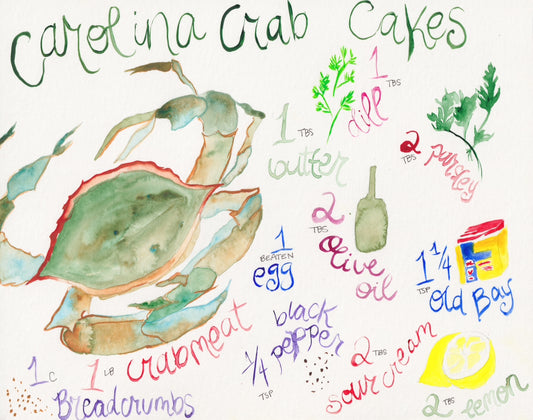 Carolina Crab Cakes
1 TBS dill
1 TBS butter
2 TBS parsley
2 TBS Olive oil
1 BEATEN egg
1 1/4 TSP Old Bay
1/4 TSP black pepper
2 TBS sour cream
1 LB crabmeat
1 C Breadcrumbs
2 TBS lemon